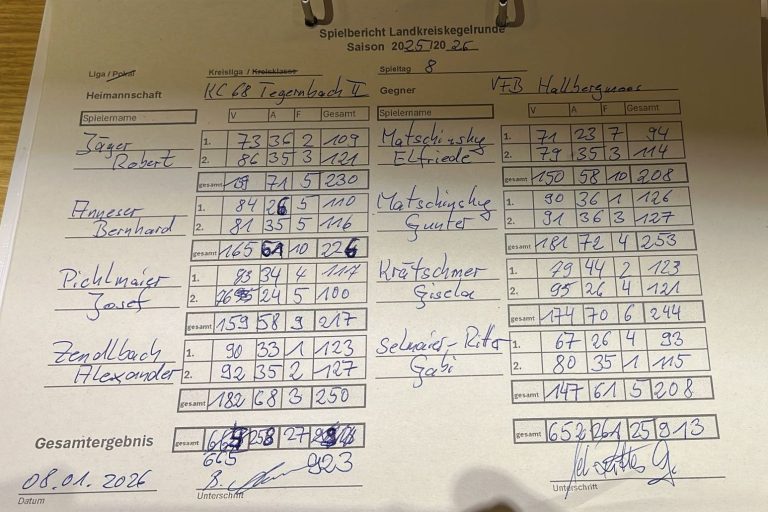 Spielbericht Landkreiskegelrunde
Saison 2025/2026
Liga / Pokal Kreisliga / Kreisklasse Spieltag 8
Heimannschaft KC 68 Tegernbach II Gegner VFB Hallbergmoos
Spielername V A F Gesamt Spielername V A F Gesamt
Jäger 1. 73 36 2 109 Matschinsky 1. 71 23 7 94
Robert 2. 86 35 3 121 Elfriede 2. 79 35 3 114
gesamt 71 5 230 gesamt 150 58 10 208
Anneser 1. 84 26 5 110 Matschinsky 1. 90 36 1 126
Bernhard 2. 81 35 5 116 Gunter 2. 91 36 3 127
gesamt 165 61 10 226 gesamt 181 72 4 253
Pichlmaier 1. 83 34 4 117 Krätschmer 1. 79 44 2 123
Josef 2. 76 24 5 100 Gisela 2. 95 26 4 121
gesamt 159 58 9 217 gesamt 174 70 6 244
Zendlbach 1. 90 33 1 123 Selmaier-Ritter 1. 67 26 4 93
Alexander 2. 92 35 2 127 Gabi 2. 80 35 1 115
gesamt 182 68 3 250 gesamt 147 61 5 208
Gesamtergebnis gesamt 258 27 gesamt 652 261 25 913
665 923
08.01.2026
Datum Unterschrift Unterschrift